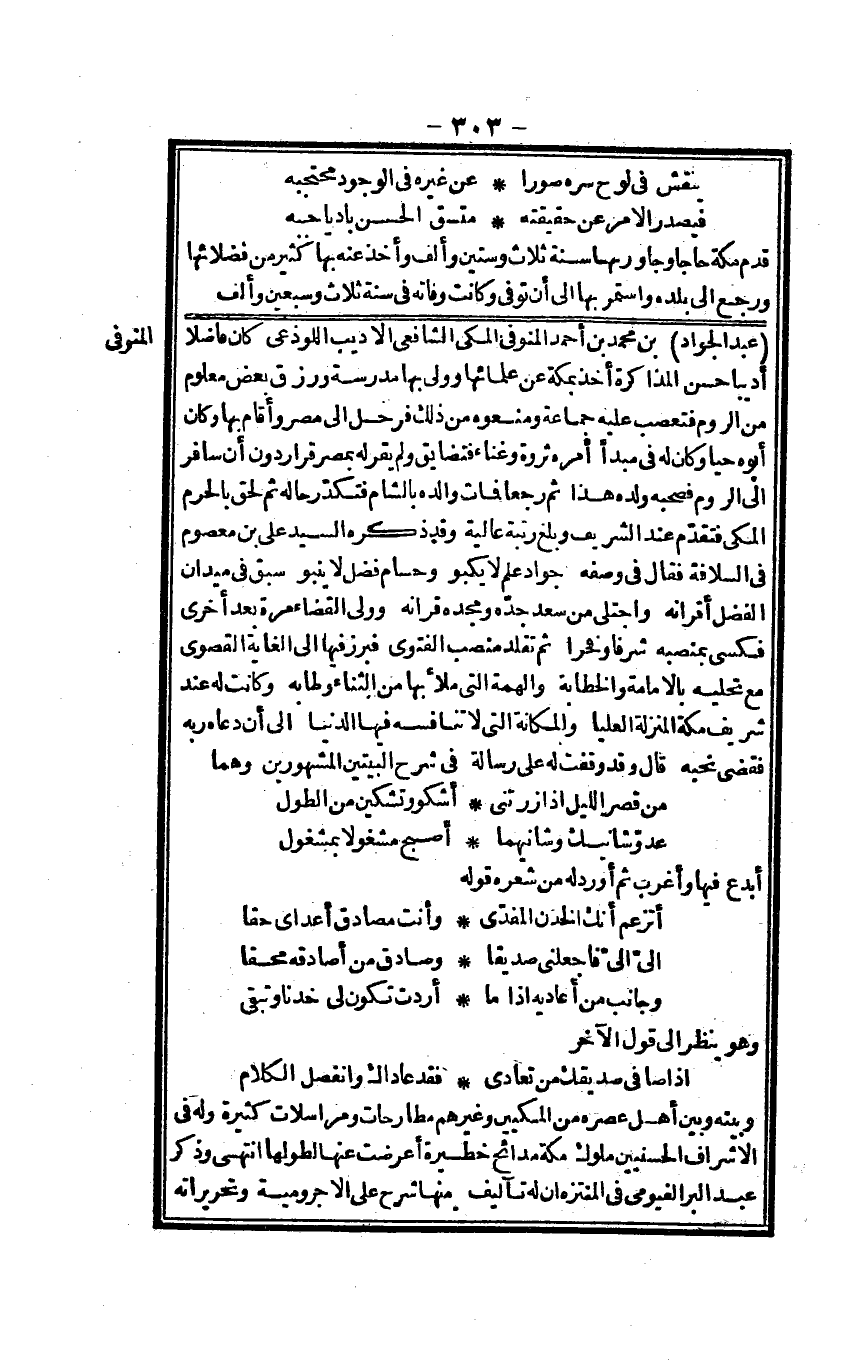 - ٣٠٣ -
ينقش فى لوح سره صورا * عن غيره فى الوجود محتجبه
فيصدر الامر عن حقيقته * متسق الحسن باديا حبه
قدم مكة حاجا وجاور بها سنة ثلاث وستين وألف وأخذ عنه بها كثير من فضلائها
ورجع الى بلده واستمر بها الى أن توفى وكانت وفاته فى سنة ثلاث وسبعين وألف
المنوفى
(عبد الجواد) بن محمد بن أحمد المنوفى المكى الشافعى الاديب اللوذعى كان فاضلا
أديبا حسن المذاكرة أخذ بمكة عن علمائها وولى بها مدرسة ورزق بعض معلوم
من الروم فتعصب عليه جماعة ومنعوه من ذلك فرحل الى مصر وأقام بها وكان
أبوه حيا وكان له فى مبدأ أمره ثروة وغناء فتضايق ولم يقر له بمصر قرار دون أن سافر
الى الروم فصحبه ولده هذا ثم رجعا فمات والده بالشام فتكدر حاله ثم لحق بالحرم
المكى فتقدّم عند الشريف وبلغ رتبة عالية وقد ذكره السيد على بن معصوم
فى السلافة فقال فى وصفه جواد علم لا يكبو وحسام فضل لا ينبو سبق فى ميدان
الفضل أقرانه واجتلى من سعد جدّه ومجده قرانه وولى القضاء مرة بعد أخرى
فكسى بمنصبه شرفا وفخرا ثم تقلد منصب الفتوى فبرز فيها الى الغاية القصوى
مع تحليه بالامامة والخطابة والهمة التى ملأ بها من الثناء وطابه وكانت له عند
شريف مكة المنزلة العليا والمكانة التى لا تنافسه فيها الدنيا الى أن دعاه ربه
فقضى نحبه قال وقد وقفت له على رسالة فى شرح البيتين المشهورين وهما
من قصر الليل اذا زرتنى * أشكو وتشكين من الطول
عدوّ شانيك وشانيهما * أصبح مشغولا بمشغول
أبدع فيها وأغرب ثم أورد له من شعره قوله
أتزعم أنك الخدن المفدّى * وأنت مصادق أعداى حقا
الىّ الىّ فاجعلنى صديقا * وصادق من أصادقه محقا
وجانب من أعاديه اذا ما * أردت تكون لى خدنا وتبقى
وهو ينظر الى قول الآخر
اذا صافى صديقك من تعادى * فقد عاداك وانفصل الكلام
وبينه وبين أهل عصره من المكيين وغيرهم مطارحات ومراسلات كثيرة وله فى
الاشراف الحسنيين ملوك مكة مدائح خطيرة أعرضت عنها لطولها انتهى وذكر
عبد البر الفيومى فى المنتزه ان له تآليف منها شرح على الاجرومية وتحريراته